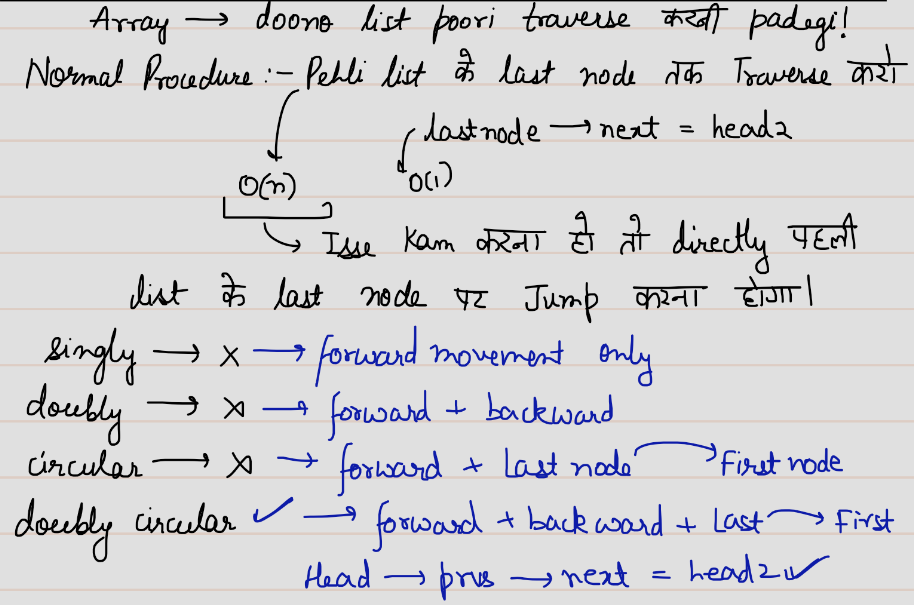 Array → doono list poori traverse करनी padegi!
Normal Procedure :- Pehli list के last node तक Traverse करो
last node → next = head2
O(n) O(1)
Isse Kam करना हो तो directly पहली
list के last node पर Jump करना होगा।
singly → x → forward movement only
doubly → x → forward + backward
circular → x → forward + Last node → First node
doubly circular ✓ → forward + backward + Last → First
Head → prvs → next = head2 ✓